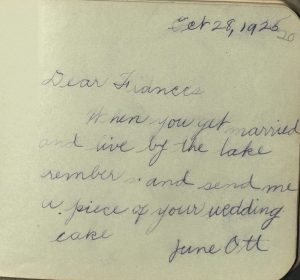 Oct 28, 1925
Dear Frances
When you get married
and live by the lake
rember. and send me
a. piece of your wedding
cake
June Ott